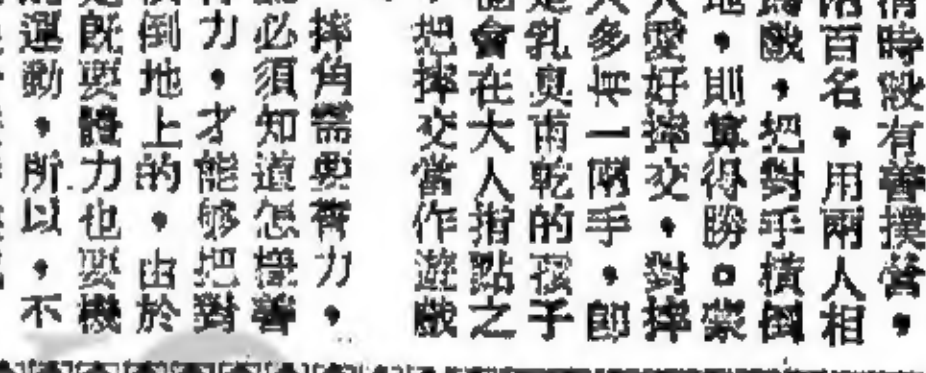 清時設有善撲營，
兩百名，用兩人相
戲，把對手橫倒
地，則算得勝。蒙
人愛好摔交，對摔
人多有一兩手，卽
是乳臭甫乾的孩子
會在大人指點之
把摔交當作遊戲
摔角需要膂力，
必須知道怎樣
力，才能够把對
倒地上的，由於
既要體力也要機
運動，所以，不